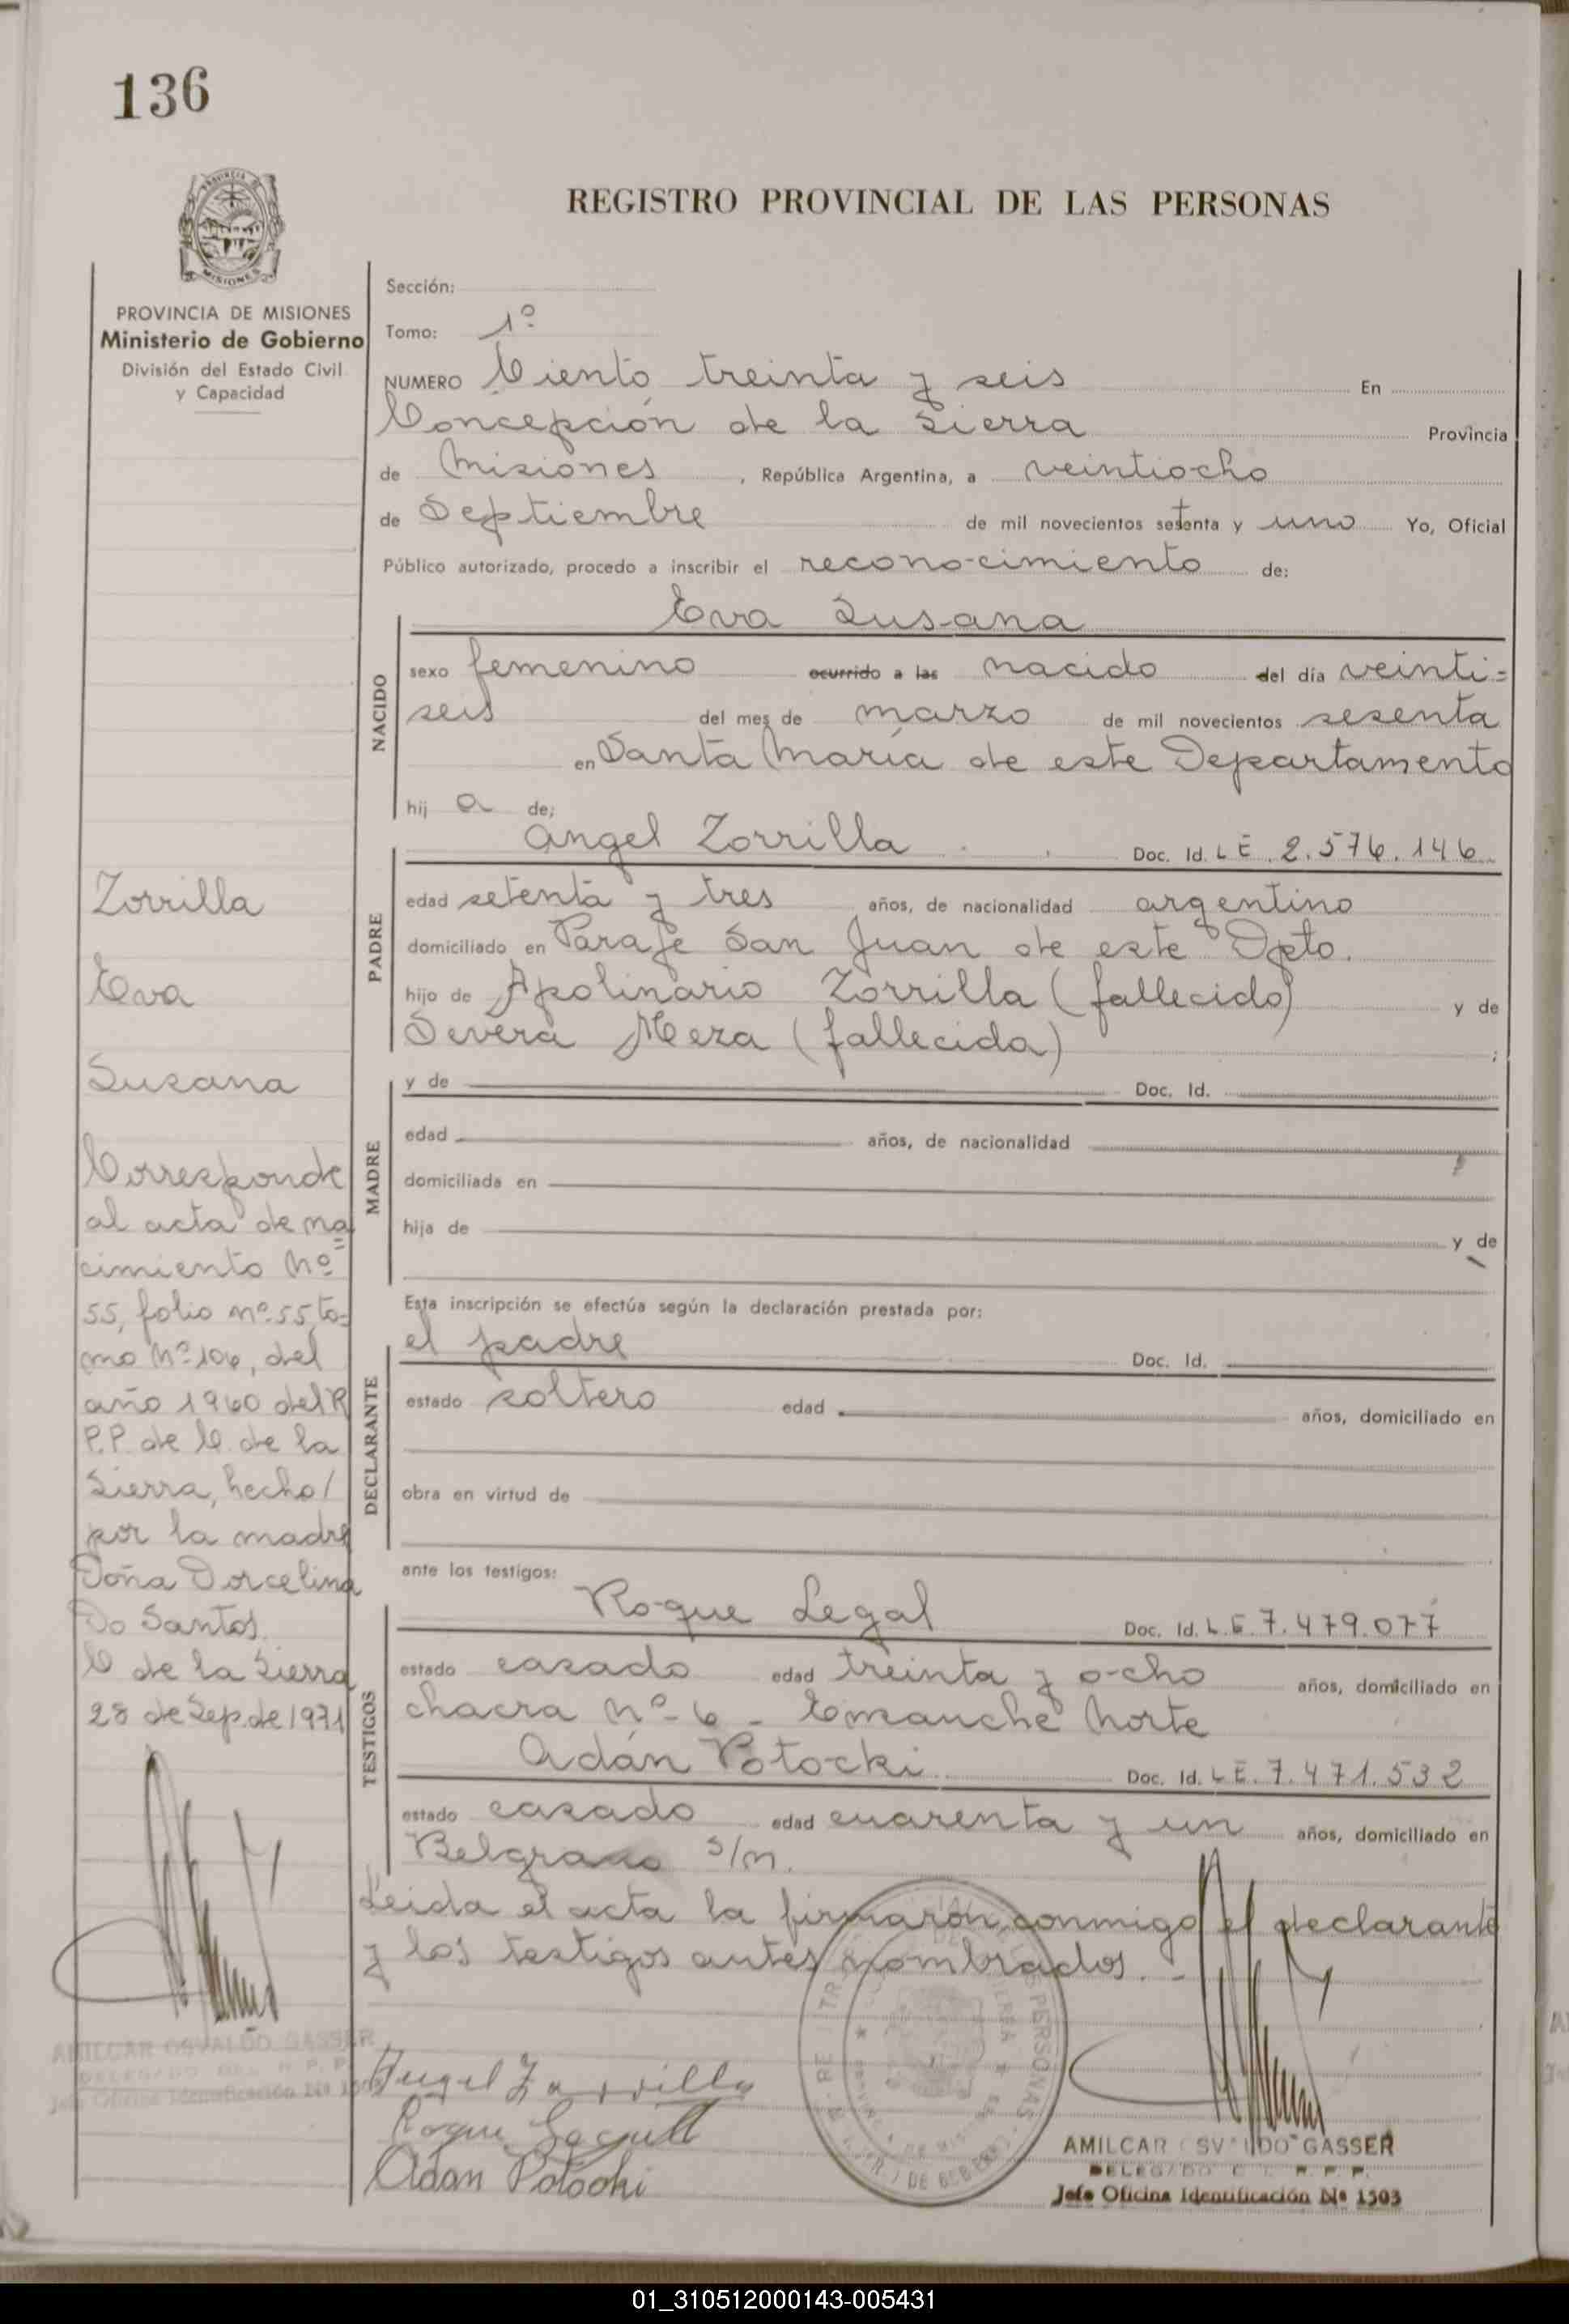 136
REGISTRO PROVINCIAL DE LAS PERSONAS
MISIONES
PROVINCIA DE MISIONES
Ministerio de Gobierno
División del Estado Civil
y Capacidad
Sección:
Tomo: 1º
NUMERO Ciento treinta y seis En
Concepción de la Sierra Provincia
de Misiones, República Argentina, a veintiocho
de Septiembre de mil novecientos setenta y uno Yo, Oficial
Público autorizado, procedo a inscribir el reconocimiento de:
NACIDO
Eva Susana
sexo femenino ocurrido a las nacido del día veinti=
seis del mes de marzo de mil novecientos sesenta
en Santa María de este Departamento
hij a de;
PADRE
Angel Zorrilla Doc. Id. L E. 2.576.146
edad setenta y tres años, de nacionalidad argentino
domiciliado en Paraje San Juan de este Dpto.
hijo de Apolinario Zorrilla (fallecido) y de
Severa Meza (fallecida) ;
MADRE
y de Doc. Id.
edad años, de nacionalidad
domiciliada en
hija de y de
Esta inscripción se efectúa según la declaración prestada por:
DECLARANTE
el padre Doc. Id.
estado soltero edad años, domiciliado en
obra en virtud de
ante los testigos:
TESTIGOS
Roque Legal Doc. Id. L.E 7.479.077
estado casado edad treinta y ocho años, domiciliado en
chacra nº 6 - Ensanche Norte
Adán Potocki Doc. Id. L E. 7.471.532
estado casado edad cuarenta y un años, domiciliado en
Belgrano s/n.
Leida el acta la firmaron conmigo el declarante
y los testigos antes nombrados. -
Zorrilla
Eva
Susana
Corresponde
al acta de na
cimiento Nº
55, folio nº 55, to=
mo Nº 106, del
año 1960 del R
P.P. de C. de la
Sierra, hecho/
por la madre
Doña Dorcelina
Do Santos.
C de la Sierra
28 de Sep. de 1971
AMILCAR OSVALDO GASSER
DELEGADO DEL R. P. P.
Jefe Oficina Identificación Nº 1503
Angel Zorrilla
Adan Potocki
PERSONAS
AMILCAR OSVALDO GASSER
DELEGADO DEL R. P. P.
Jefe Oficina Identificación Nº 1503
01_310512000143-005431